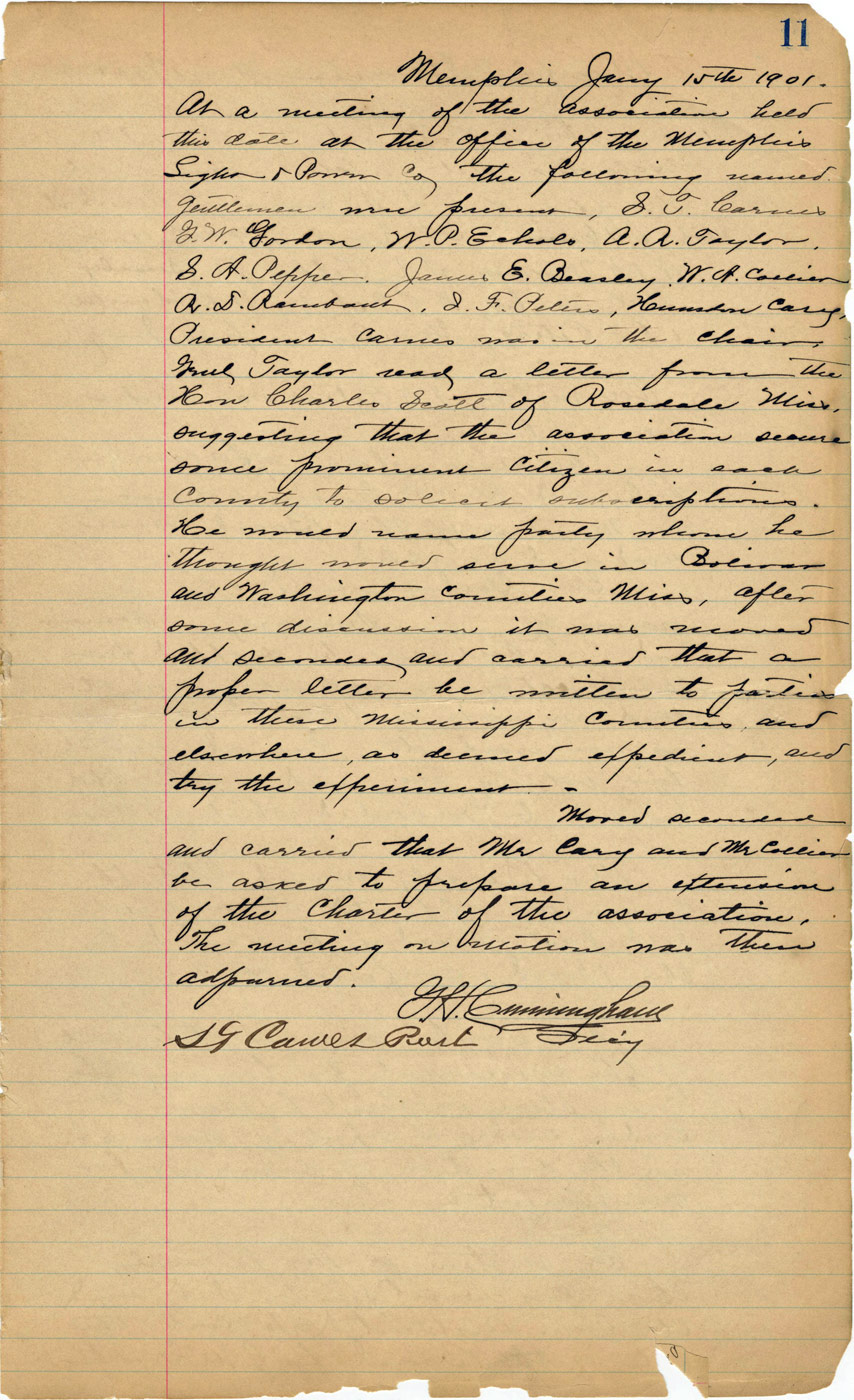 11
Memphis Jany 15th 1901.
At a meeting of the association held
this date at the office of the Memphis
Light & Power Co, the following named
gentlemen were present, S. T. Carnes
G. W. Gordon, W. P. Echols, A. R. Taylor,
S. A. Pepper. James E. Beasley, W. A. Collier
R. D. Rambaut, I. F. Peters, Hunsdon Cary,
President Carnes was in the chair,
Taylor read a letter from the
Hon Charles Scott of Rosedale Miss.
suggesting that the association secure
some prominent citizen in each
County to solicit subscriptions.
He would name party whom he
thought would serve in Bolivar
and Washington Counties Miss, after
some discussion it was moved
and seconded and carried that a
proper letter be written to parties
in these Mississippi Counties, and
elsewhere, as deemed expedient, and
try the experiment -
Moved seconded
and carried that Mr Cary and Mr Collier
be asked to prepare an extension
of the Charter of the association.
The meeting on motion was then
adjourned.
Cunningham
S T Carnes Prest Secy